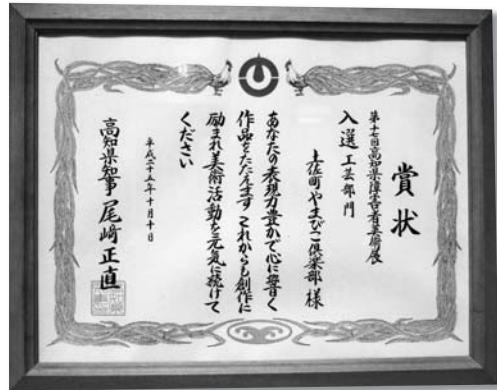 賞状
第十七回高知県障害者美術展
入選 工芸部門
土佐町やまびこ倶楽部 様
あなたの表現力豊かで心に響く
作品をたたえます これからも創作に
励まれ美術活動を元気に続けて
ください
平成二十五年十月十日
高知県知事 尾﨑正直